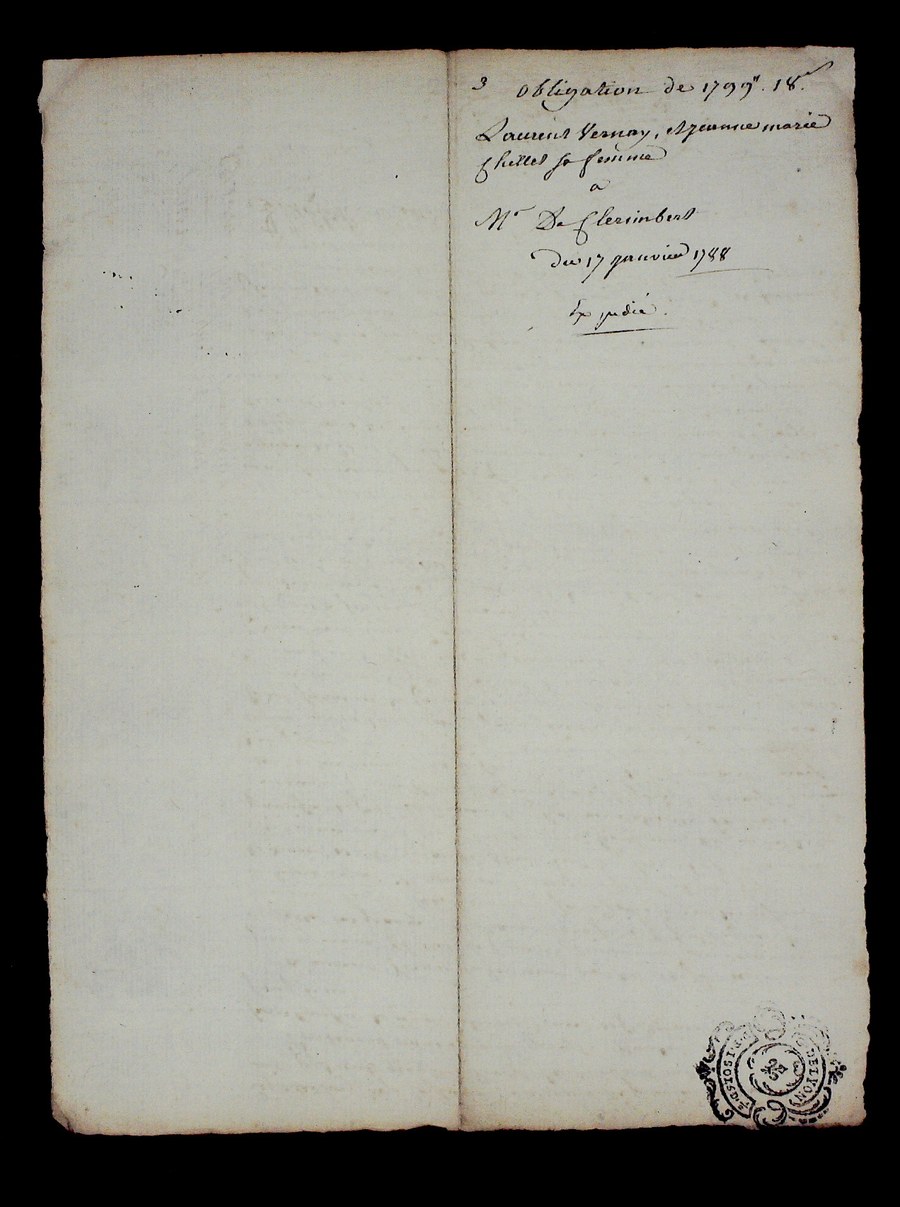 3 obligation de 1799ᵗᵗ. 18ˢ.
Laurent Vernay, et jeanne marie
Chillet sa femme
a
Mʳ De Clerimbert
du 17 janvier 1788
Expédié.
DE LYON